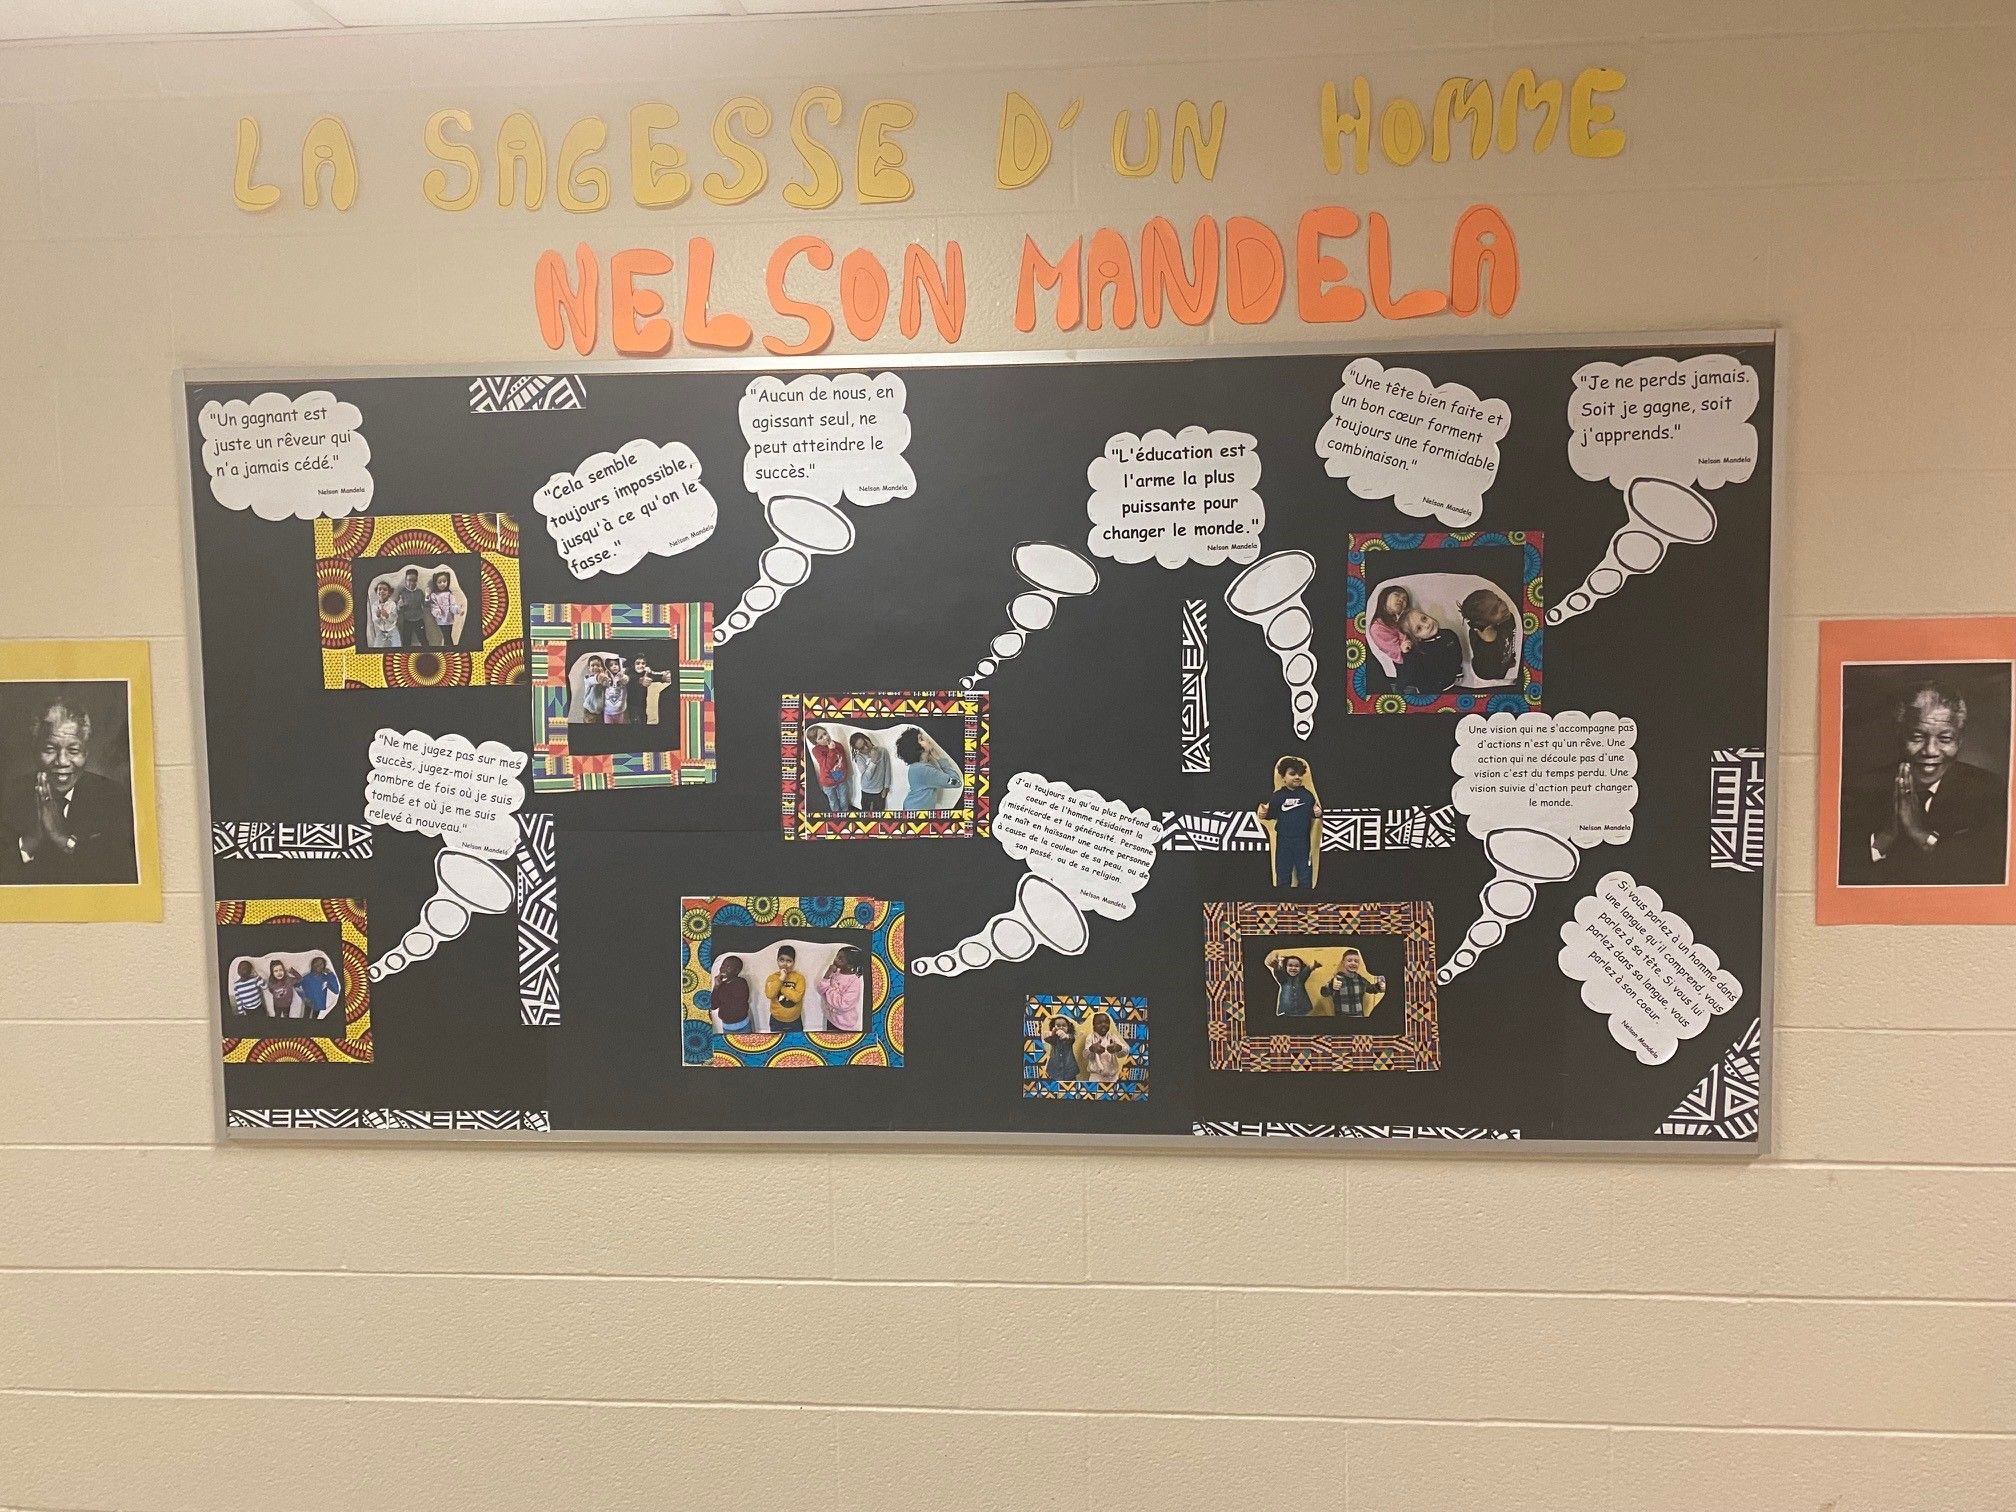 LA SAGESSE D'UN HOMME
NELSON MANDELA
"Un gagnant est
juste un rêveur qui
n'a jamais cédé."
Nelson Mandela
"Cela semble
toujours impossible,
jusqu'à ce qu'on le
fasse."
Nelson Mandela
"Aucun de nous, en
agissant seul, ne
peut atteindre le
succès."
Nelson Mandela
"L'éducation est
l'arme la plus
puissante pour
changer le monde."
Nelson Mandela
"Une tête bien faite et
un bon cœur forment
toujours une formidable
combinaison."
Nelson Mandela
"Je ne perds jamais.
Soit je gagne, soit
j'apprends."
Nelson Mandela
"Ne me jugez pas sur mes
succès, jugez-moi sur le
nombre de fois où je suis
tombé et où je me suis
relevé à nouveau."
Nelson Mandela
J'ai toujours su qu'au plus profond du
coeur de l'homme résidaient la
miséricorde et la générosité. Personne
ne naît en haïssant une autre personne
à cause de la couleur de sa peau, ou de
son passé, ou de sa religion.
Nelson Mandela
Une vision qui ne s'accompagne pas
d'actions n'est qu'un rêve. Une
action qui ne découle pas d'une
vision c'est du temps perdu. Une
vision suivie d'action peut changer
le monde.
Nelson Mandela
Si vous parlez à un homme dans
une langue qu'il comprend, vous
parlez à sa tête. Si vous lui
parlez dans sa langue, vous
parlez à son coeur.
Nelson Mandela
NIKE